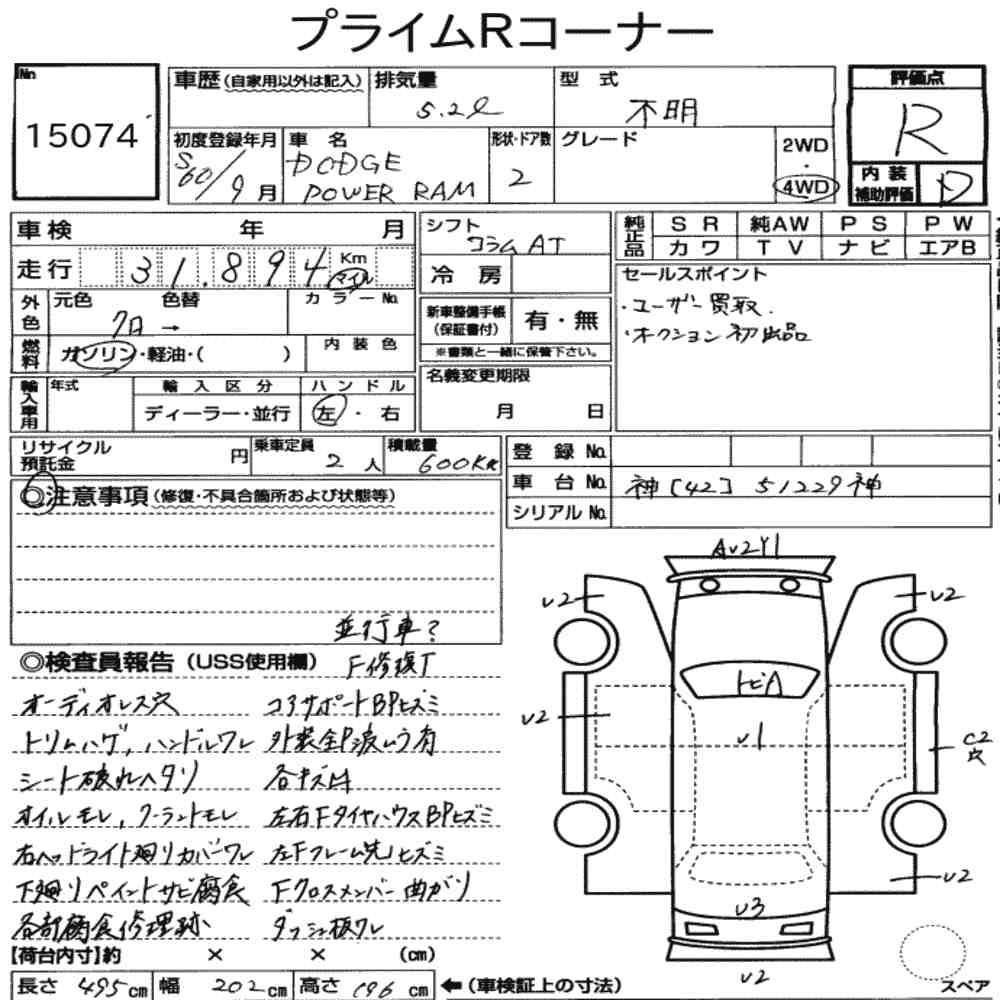 プライムRコーナー
No
15074
車歴(自家用以外は記入)
排気量
5.2ℓ
型式
不明
評価点
R
初度登録年月
S60/9月
車名
DODGE
POWER RAM
形状・ドア数
2
グレード
2WD
・
4WD
内装
補助評価
D
車検 年 月
走行 31,894 Km
マイル
外色
元色 色替
クロ→
カラーNo.
燃料
ガソリン・軽油・( )
内装色
輸入車用
年式
輸入区分
ディーラー・並行
ハンドル
左・右
シフト
コラムAT
冷房
新車整備手帳
(保証書付)
有・無
※書類と一緒に保管下さい。
名義変更期限
月 日
純正品
SR 純AW PS PW
カワ TV ナビ エアB
セールスポイント
・ユーザー買取.
・オクション初出品
リサイクル
預託金
円
乗車定員
2人
積載量
600Kg
登録No.
車台No. 神[42]51229神
シリアルNo.
◎注意事項(修復・不具合箇所および状態等)
並行車?
◎検査員報告(USS使用欄) F修復T
オーディオレス穴 コアサポートBPヒズミ
トリムハゲ,ハンドルワレ 外装全P波ムラ有
シート破れヘタリ 各キズ凹
オイルモレ,クーラントモレ 左右FタイヤハウスBPヒズミ
右ヘッドライト廻りカバーワレ 左Fフレーム先ヒズミ
下廻りペイントサビ腐食 Fクロスメンバー曲がり
各部腐食修理跡 ダッシュ板ワレ
【荷台内寸】約 × × (cm)
長さ 495cm 幅 202cm 高さ 196cm ←(車検証上の寸法)
AU2Y1
U2
U2
トビA
U2
U1
C2
穴
U2
U3
U2
スペア